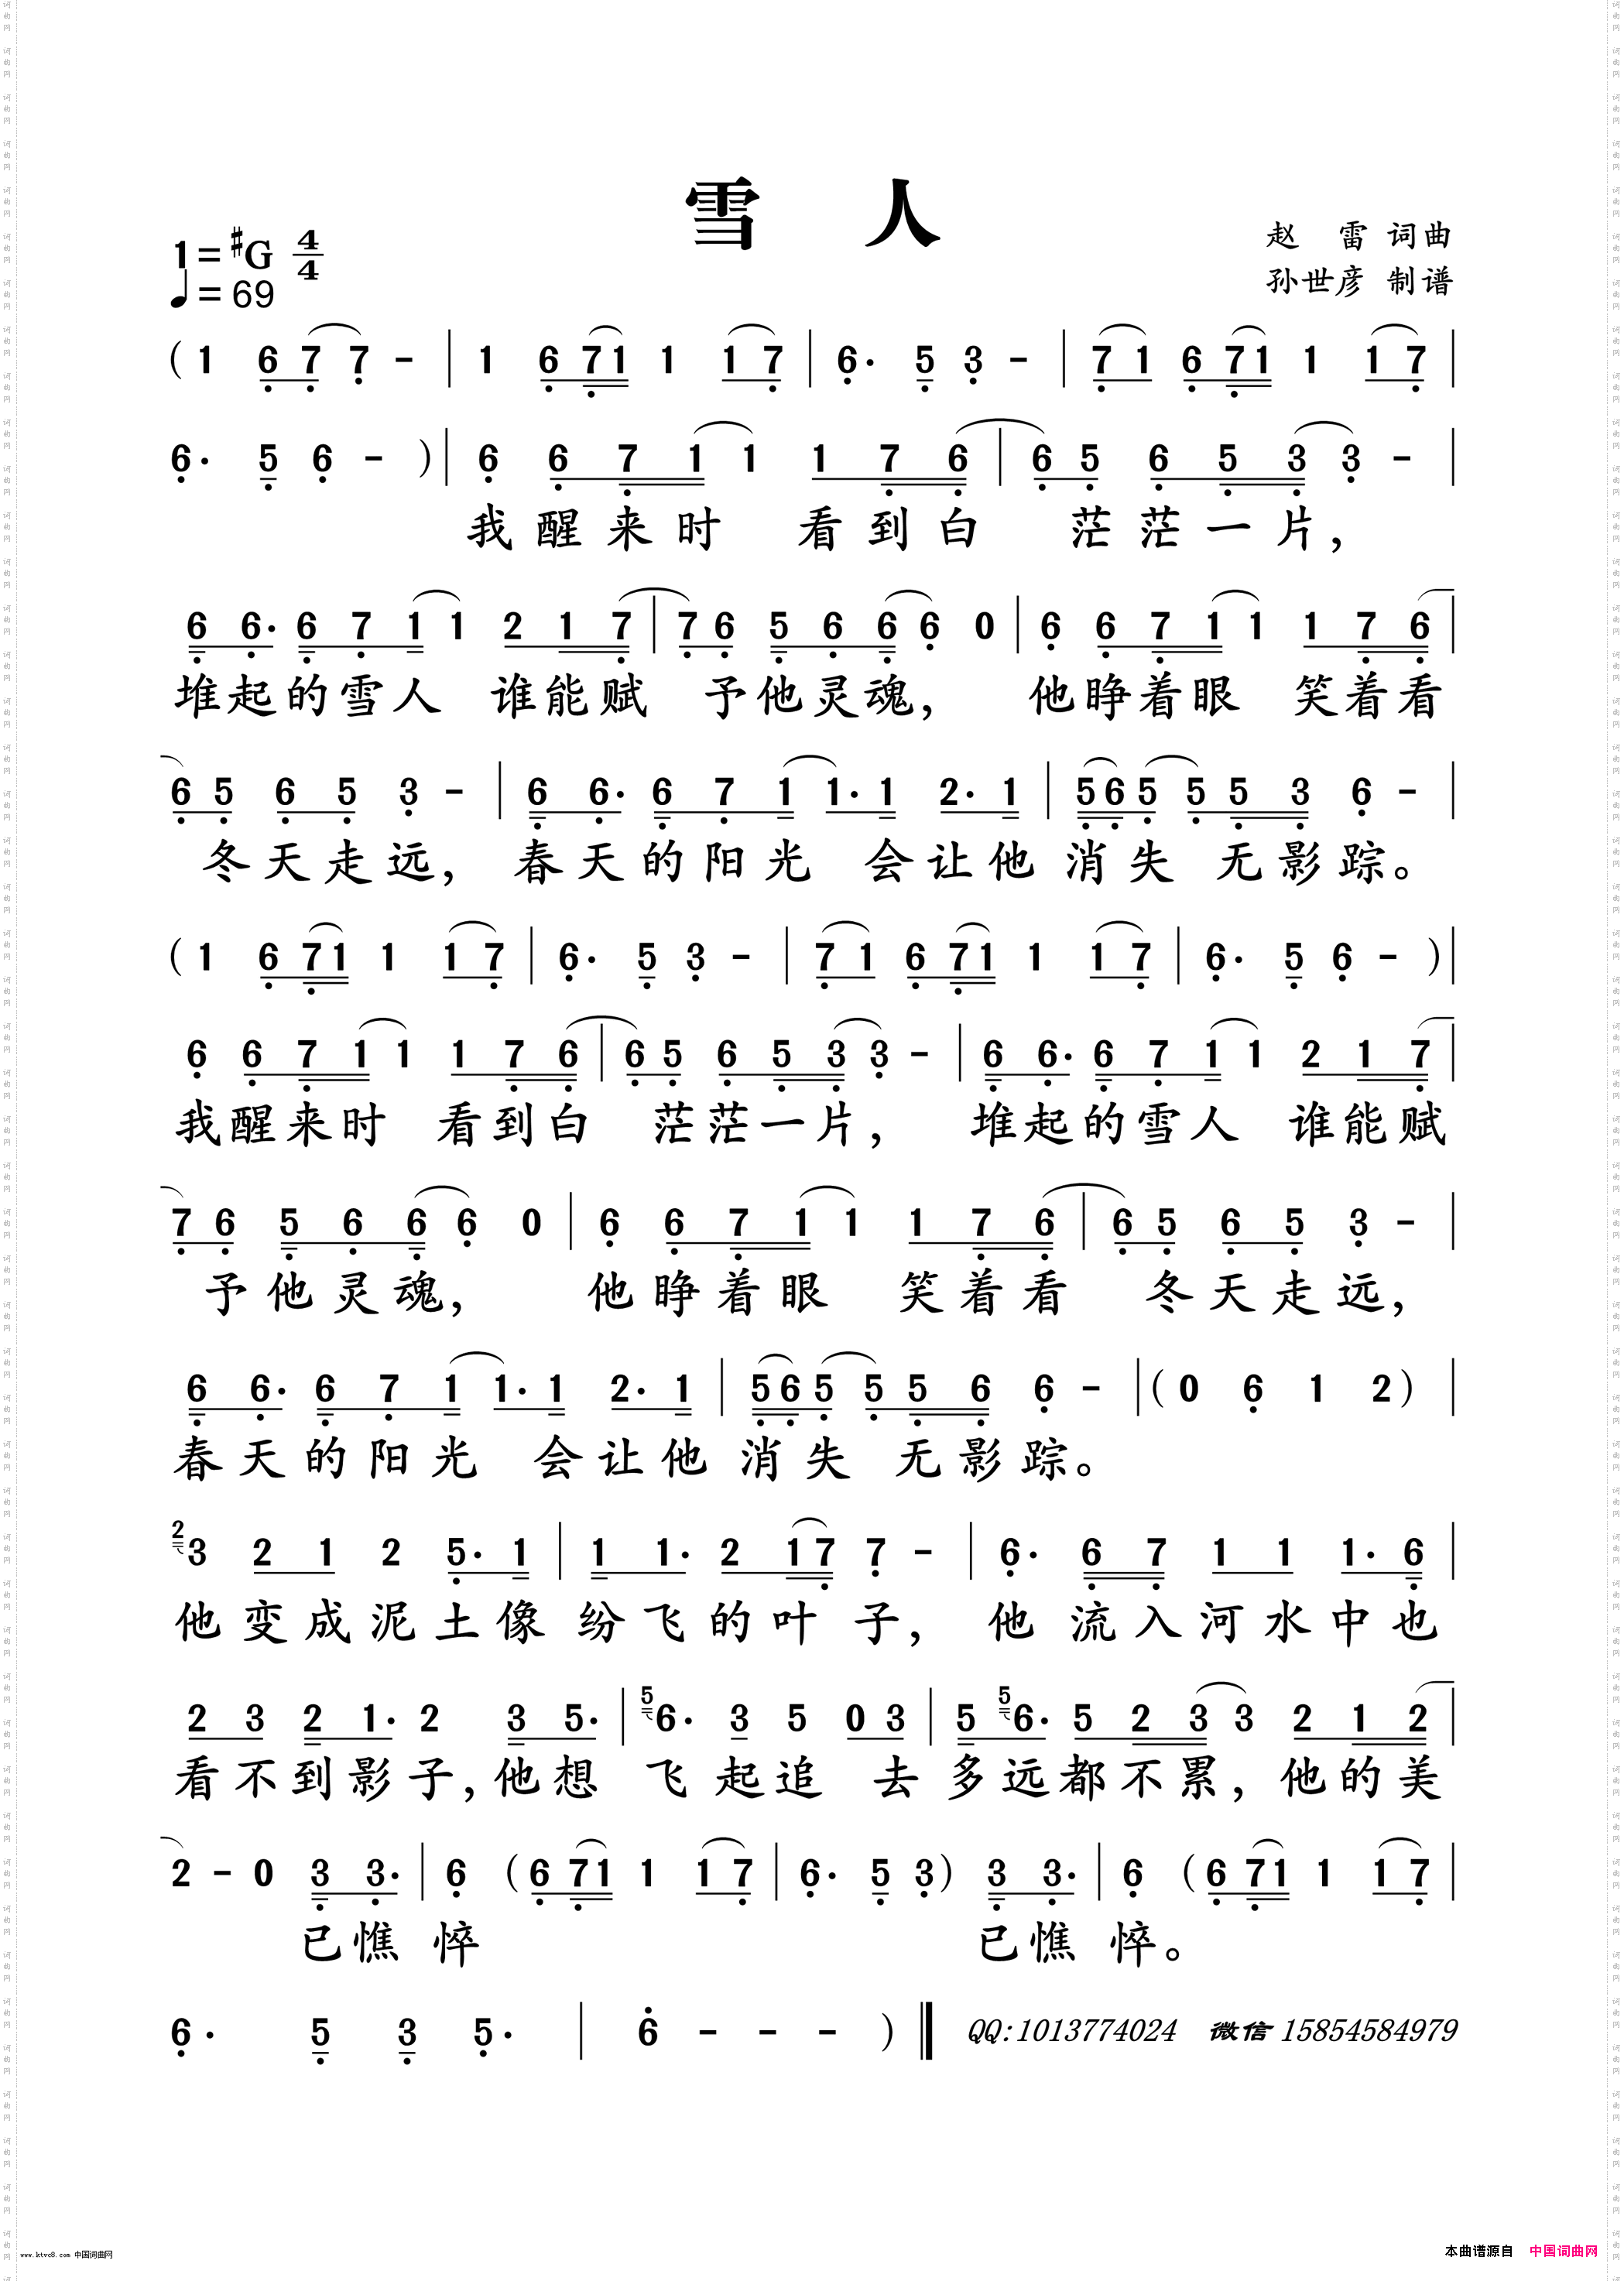 雪 人
1=#G 4/4
♩=69
赵 雷 词曲
孙世彦 制谱
( 1 6 7 7 - | 1 6 7 1 1 1 7 | 6· 5 3 - | 7 1 6 7 1 1 1 7 |
6· 5 6 - ) | 6 6 7 1 1 1 7 6 | 6 5 6 5 3 3 - |
我醒来时 看到白 茫茫一片,
6 6· 6 7 1 1 2 1 7 | 7 6 5 6 6 6 0 | 6 6 7 1 1 1 7 6 |
堆起的雪人 谁能赋 予他灵魂, 他睁着眼 笑着看
6 5 6 5 3 - | 6 6· 6 7 1 1· 1 2· 1 | 5 6 5 5 5 3 6 - |
冬天走远, 春天的阳光 会让他 消失 无影踪。
( 1 6 7 1 1 1 7 | 6· 5 3 - | 7 1 6 7 1 1 1 7 | 6· 5 6 - ) |
6 6 7 1 1 1 7 6 | 6 5 6 5 3 3 - | 6 6· 6 7 1 1 2 1 7 |
我醒来时 看到白 茫茫一片, 堆起的雪人 谁能赋
7 6 5 6 6 6 0 | 6 6 7 1 1 1 7 6 | 6 5 6 5 3 - |
予他灵魂, 他睁着眼 笑着看 冬天走远,
6 6· 6 7 1 1· 1 2· 1 | 5 6 5 5 5 6 6 - | ( 0 6 1 2 ) |
春天的阳光 会让他 消失 无影踪。
2 3 2 1 2 5· 1 | 1 1· 2 1 7 7 - | 6· 6 7 1 1 1· 6 |
他变成泥土像 纷飞的叶子, 他流入河水中也
2 3 2 1· 2 3 5· | 5 6· 3 5 0 3 | 5 5 6· 5 2 3 3 2 1 2 |
看不到影子,他想 飞起追 去多远都不累,他的美
2 - 0 3 3· | 6 ( 6 7 1 1 1 7 | 6· 5 3 ) 3 3· | 6 ( 6 7 1 1 1 7 |
已憔 悴 已憔 悴。
6· 5 3 5· | 6 - - - ) ‖ QQ:1013774024 微信 15854584979
www.ktvc8.com 中国词曲网
本曲谱源自 中国词曲网